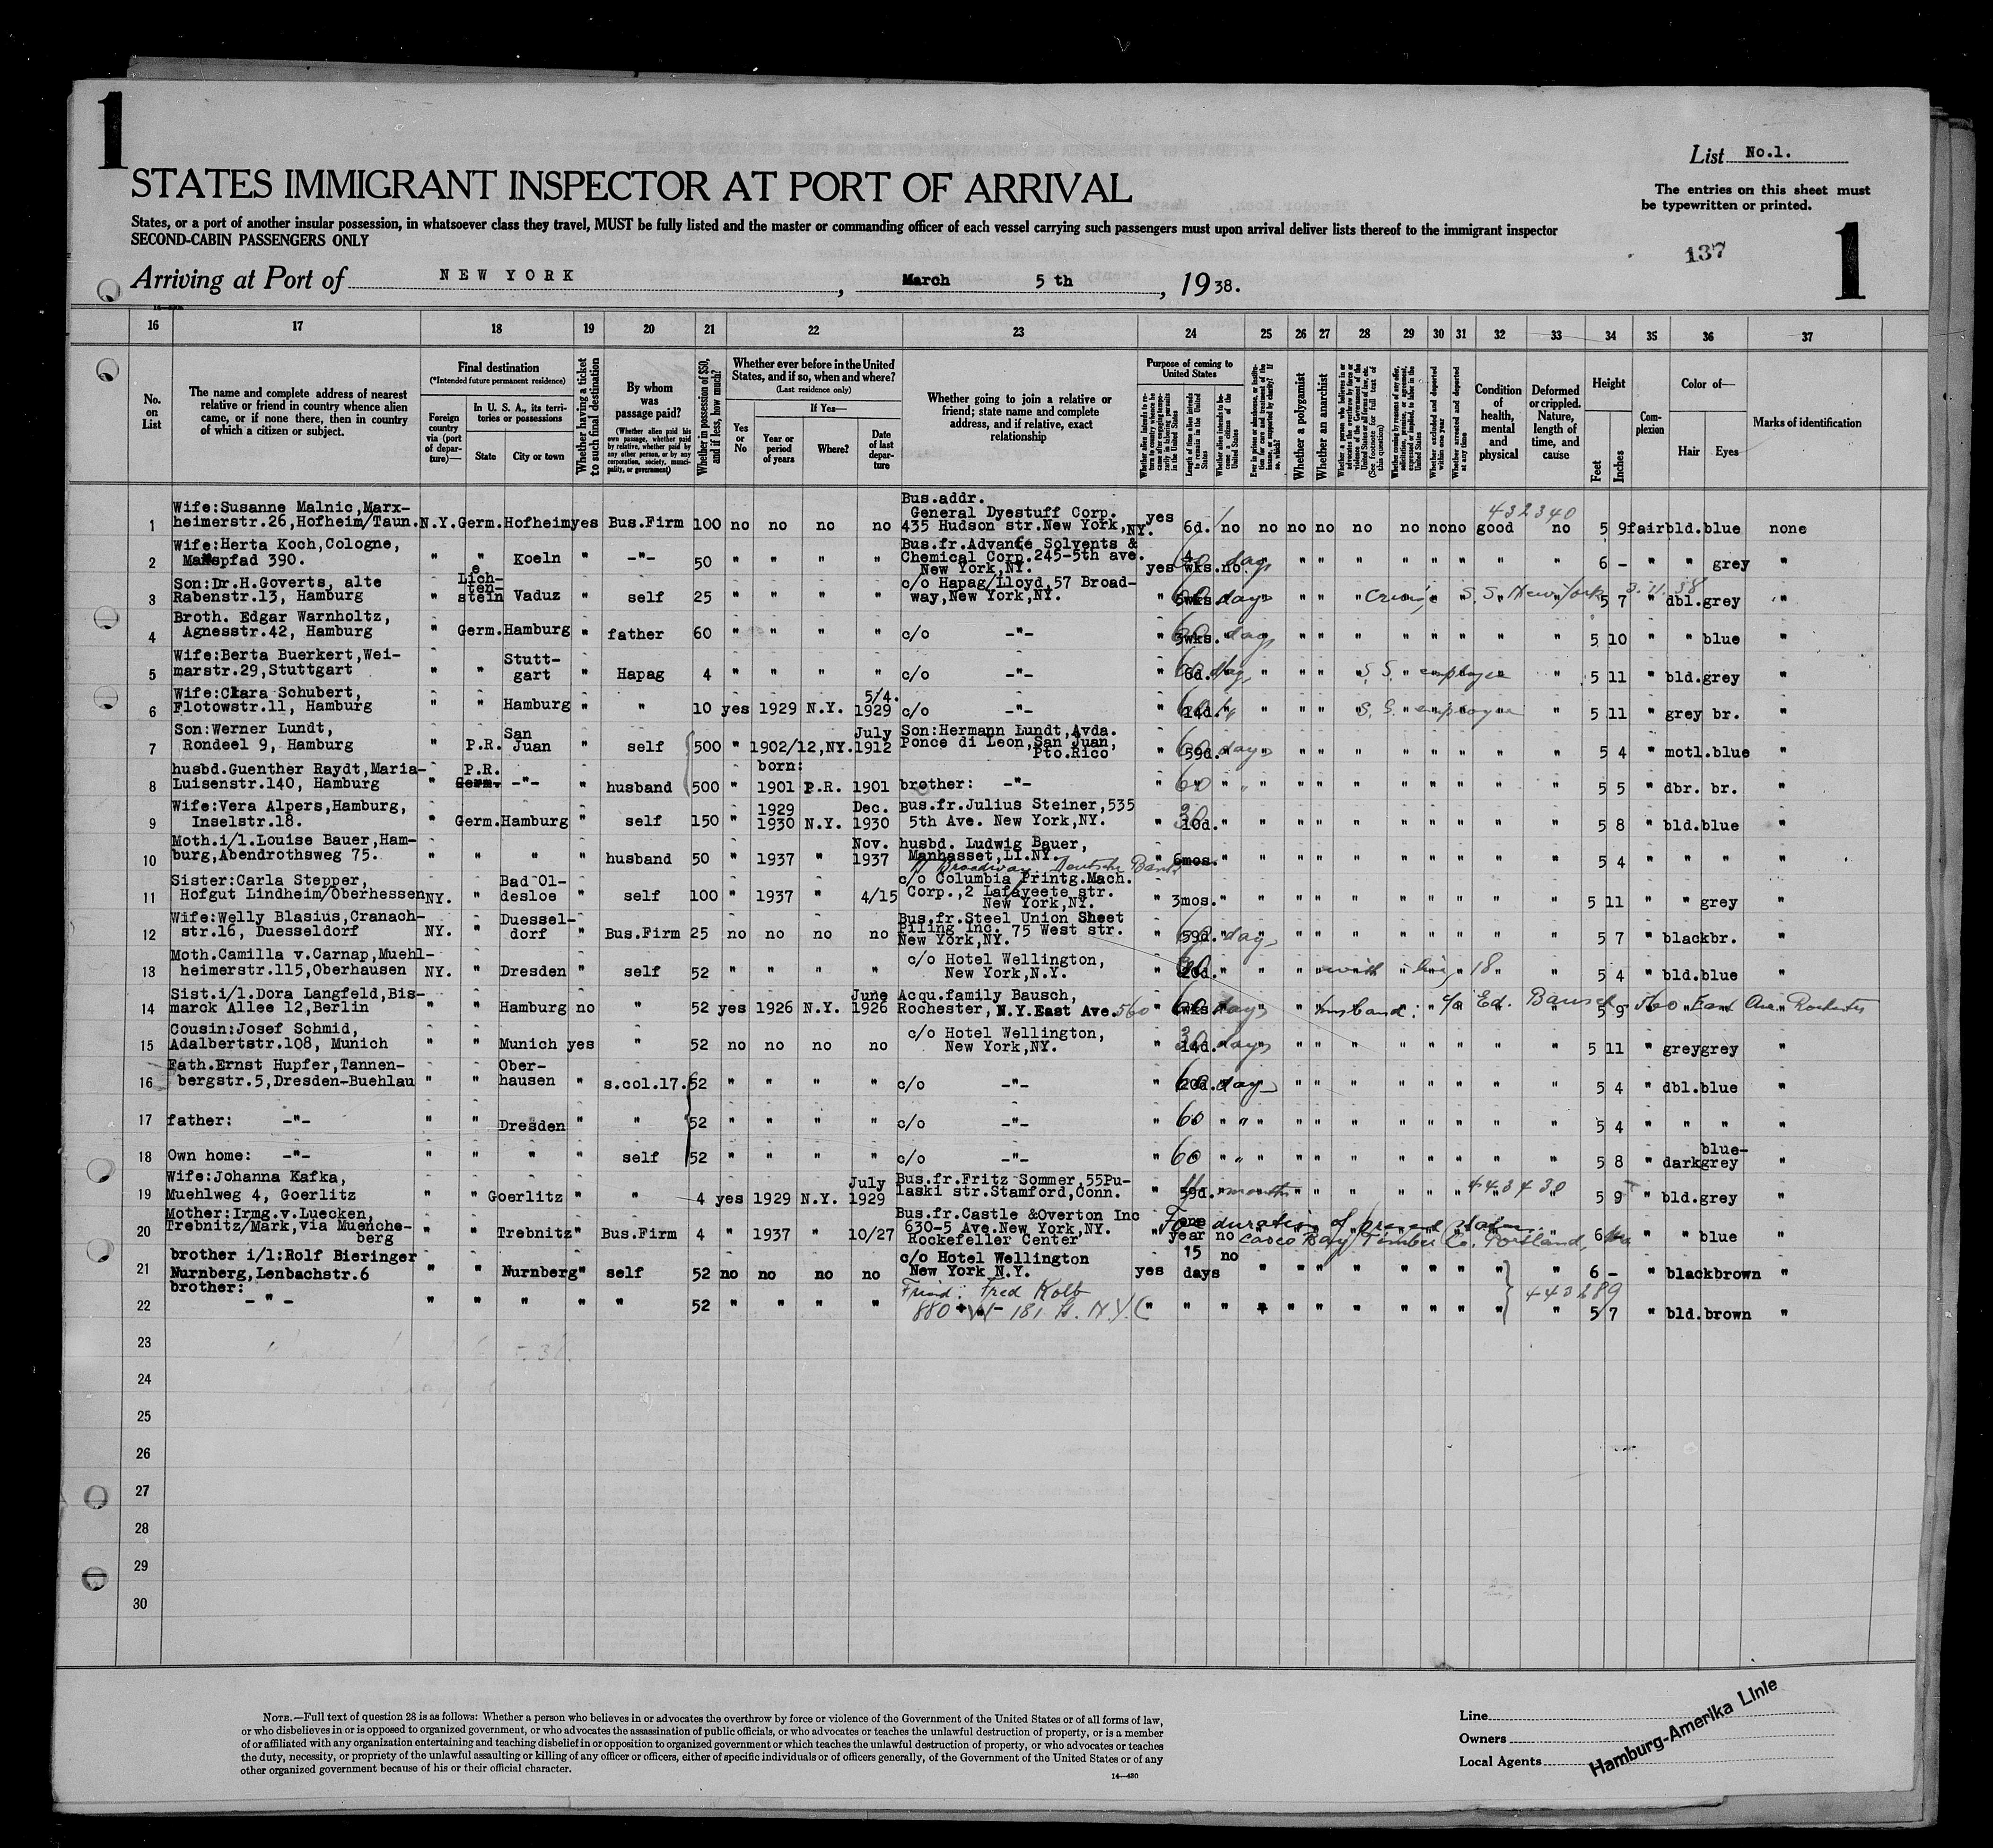 1
List No.1.
STATES IMMIGRANT INSPECTOR AT PORT OF ARRIVAL
The entries on this sheet must
be typewritten or printed.
States, or a port of another insular possession, in whatsoever class they travel, MUST be fully listed and the master or commanding officer of each vessel carrying such passengers must upon arrival deliver lists thereof to the immigrant inspector
SECOND-CABIN PASSENGERS ONLY
137
1
Arriving at Port of NEW YORK, March 5 th, 1938.
16 17 18 19 20 21 22 23 24 25 26 27 28 29 30 31 32 33 34 35 36 37
No. on List
The name and complete address of nearest relative or friend in country whence alien came, or if none there, then in country of which a citizen or subject.
Final destination
(*Intended future permanent residence)
Foreign country via (port of departure)—
In U. S. A., its territories or possessions
State
City or town
Whether having a ticket to such final destination
By whom was passage paid?
(Whether alien paid his own passage, whether paid by relative, whether paid by any other person, or by any corporation, society, municipality, or government)
Whether in possession of $50, and if less, how much?
Whether ever before in the United States, and if so, when and where?
(Last residence only)
Yes or No
If Yes—
Year or period of years
Where?
Date of last departure
Whether going to join a relative or friend; state name and complete address, and if relative, exact relationship
Purpose of coming to United States
Length of time alien intends to remain in the United States
Whether alien intends to become a citizen of the United States
Whether a polygamist
Whether an anarchist
Whether excluded and deported within one year
Whether arrested and deported at any time
Condition of health, mental and physical
Deformed or crippled. Nature, length of time, and cause
Height
Feet
Inches
Complexion
Color of—
Hair
Eyes
Marks of identification
432340
1 Wife:Susanne Malnic,Marx-
heimerstr.26,Hofheim/Taun. N.Y. Germ. Hofheim yes Bus.Firm 100 no no no no Bus.addr.
General Dyestuff Corp.
435 Hudson str.New York,NY. yes 6d. no no no no no no no no good no 5 9 fair bld. blue none
2 Wife:Herta Koch,Cologne,
Manspfad 390. " " Koeln " -"- 50 " " " " Bus.fr.Advance Solvents &
Chemical Corp.245-5th ave.
New York,NY. yes wks. no days 6 - " " grey "
3 Son:Dr.H.Goverts, alte
Rabenstr.13, Hamburg " Liechtenstein Vaduz " self 25 " " " " c/o Hapag/Lloyd,57 Broad-
way,New York,NY. " 5wks. 60 days S.S. New York 3.11.38 5 7 " dbl. grey "
4 Broth. Edgar Warnholtz,
Agnesstr.42, Hamburg " Germ. Hamburg " father 60 " " " " c/o -"- " 3wks. 60 days 5 10 " " blue "
5 Wife:Berta Buerkert,Wei-
marstr.29,Stuttgart " " Stutt-
gart " Hapag 4 " " " " c/o -"- " 6d. 60 day S.S. employee 5 11 " bld. grey "
6 Wife:Clara Schubert,
Flotowstr.11, Hamburg " " Hamburg " " 10 yes 1929 N.Y. 5/4.
1929 c/o -"- " 14d. S.S. employee 5 11 " grey br. "
7 Son:Werner Lundt,
Rondeel 9, Hamburg " P.R. San
Juan " self 500 " 1902/12,NY. July
1912 Son:Hermann Lundt,Avda.
Ponce di Leon,San Juan,
Pto.Rico " 59d. 60 days 5 4 " motl. blue "
8 husbd.Guenther Raydt,Maria-
Luisenstr.140, Hamburg " P.R.
Germ. -"- " husband 500 " born:
1901 P.R. 1901 brother: -"- " 60 5 5 " dbr. br. "
9 Wife:Vera Alpers,Hamburg,
Inselstr.18. " Germ. Hamburg " self 150 " 1929
1930 N.Y. Dec.
1930 Bus.fr.Julius Steiner,535
5th Ave. New York,NY. " 10d. 30 5 8 " bld. blue "
10 Moth.i/l.Louise Bauer,Ham-
burg,Abendrothsweg 75. " " " husband 50 " 1937 " Nov.
1937 husbd. Ludwig Bauer,
Manhasset,LI.NY. Broadway Deutsche Bank " 6mos. 5 4 " " " "
11 Sister:Carla Stepper,
Hofgut Lindheim/Oberhessen NY. " Bad Ol-
desloe " self 100 " 1937 " 4/15 c/o Columbia Printg.Mach.
Corp.,2 Lafayeete str.
New York,NY. " 3mos. 5 11 " " grey "
12 Wife:Welly Blasius,Cranach-
str.16, Duesseldorf NY. " Duessel-
dorf " Bus.Firm 25 no no no no Bus.fr.Steel Union Sheet
Piling Inc. 75 West str.
New York,NY. " 59d. days 5 7 " black br. "
13 Moth.Camilla v.Carnap,Muehl-
heimerstr.115,Oberhausen NY. " Dresden " self 52 " " " " c/o Hotel Wellington,
New York,N.Y. " 20d. with 18 5 4 " bld. blue "
14 Sist.i/l.Dora Langfeld,Bis-
marck Allee 12,Berlin " " Hamburg no " 52 yes 1926 N.Y. June
1926 Acqu.family Bausch,
Rochester, N.Y.East Ave. 560 " wks. days husband: c/o Ed. Bausch 560 East Ave. Rochester 5 9
15 Cousin:Josef Schmid,
Adalbertstr.108, Munich " " Munich yes " 52 no no no no c/o Hotel Wellington,
New York,NY. " 14d. 30 days 5 11 " grey grey "
16 Fath.Ernst Hupfer,Tannen-
bergstr.5,Dresden-Buehlau " " Ober-
hausen " s.col.17. 52 " " " " c/o -"- " 20d. 60 days 5 4 " dbl. blue "
17 father: -"- " " Dresden " " 52 " " " " c/o -"- " 60 5 4 " " " "
18 Own home: -"- " " " " self 52 " " " " c/o -"- " 60 5 8 " dark blue-
grey "
19 Wife:Johanna Kafka,
Muehlweg 4, Goerlitz " " Goerlitz " " 4 yes 1929 N.Y. July
1929 Bus.fr.Fritz Sommer,55Pu-
laski str.Stamford,Conn. " 59d. months 443430 5 9 " bld. grey "
20 Mother:Irmg.v.Luecken,
Trebnitz/Mark,via Muenche-
berg " " Trebnitz " Bus.Firm 4 " 1937 " 10/27 Bus.fr.Castle &Overton Inc
630-5 Ave.New York,NY.
Rockefeller Center " one
year no For duration of present status
Casco Bay Timber Co. Portland, Me 6 " " blue "
21 brother i/l:Rolf Bieringer
Nurnberg,Lenbachstr.6 " " Nurnberg " self 52 no no no no c/o Hotel Wellington
New York N.Y. yes 15
days no " " " " " " " " " 6 - " black brown "
22 brother:
-"- " " " " " 52 " " " " Friend: Fred Kolb
880 W- 181 St. N.Y.C " " " " " " " " " " " " 443289 5 7 " bld. brown "
23
24
25
26
27
28
29
30
NOTE.—Full text of question 28 is as follows: Whether a person who believes in or advocates the overthrow by force or violence of the Government of the United States or of all forms of law,
or who disbelieves in or is opposed to organized government, or who advocates the assassination of public officials, or who advocates or teaches the unlawful destruction of property, or is a member
of or affiliated with any organization entertaining and teaching disbelief in or opposition to organized government or which teaches the unlawful destruction of property, or who advocates or teaches
the duty, necessity, or propriety of the unlawful assaulting or killing of any officer or officers, either of specific individuals or of officers generally, of the Government of the United States or of any
other organized government because of his or their official character.
14—430
Line
Owners
Local Agents
Hamburg-Amerika Linie